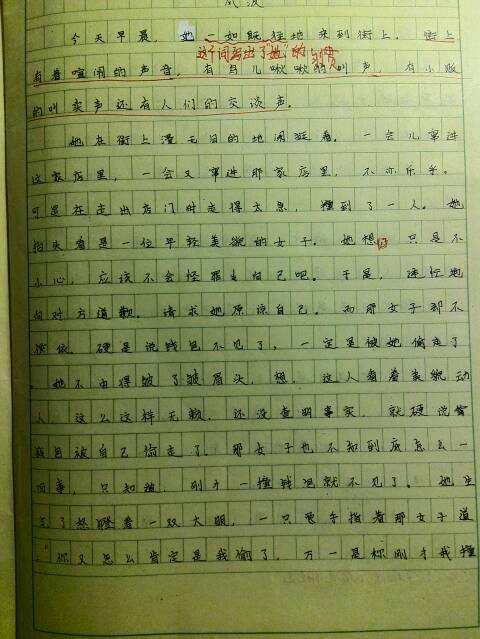 风波
今天早晨，她一如既往地来到街上。街上
这个词写出了“她”的习惯
有着喧闹的声音，有鸟儿啾啾的叫声，有小贩
的叫卖声还有人们的交谈声。
她在街上漫无目的地闲逛着。一会儿窜进
这家店里，一会又窜进那家店里，不亦乐乎。
可是在走出店门时走得太急，撞到了一人。她
抬头看是一位年轻美貌的女子。她想，只是不
小心，应该不会怪罪自己吧。于是，连忙地
向对方道歉。请求她原谅自己。而那女子却不
依，硬是说钱包不见了，一定是被她偷走了
。她不由得皱了皱眉头，想，这人看着美貌动
人，怎么这样无赖。还没查明事实，就硬说
包被自己偷走了。那女子也不知到底怎么一
回事，只知道，刚才一撞钱包就不见了。她生
气了怒瞪着一双大眼，一只手指着那女子道
：“你又怎么肯定是我偷了，万一是你刚才我撞